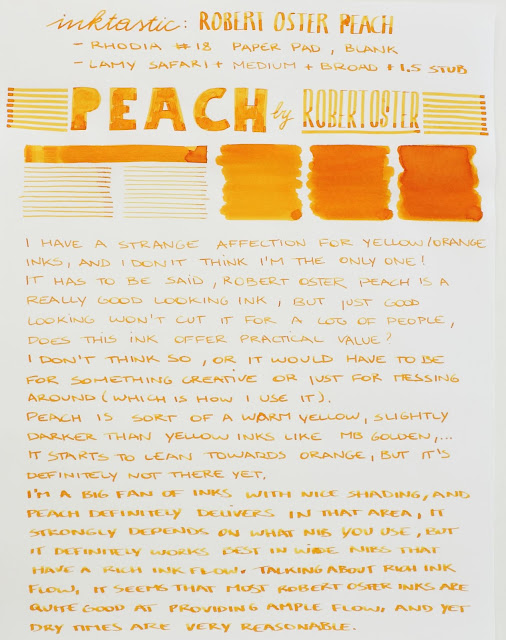 inktastic: ROBERT OSTER PEACH
- RHODIA #18 PAPER PAD, BLANK
- LAMY SAFARI + MEDIUM + BROAD + 1.5 STUB
PEACH by ROBERT OSTER
I HAVE A STRANGE AFFECTION FOR YELLOW/ORANGE
INKS, AND I DON'T THINK I'M THE ONLY ONE!
IT HAS TO BE SAID, ROBERT OSTER PEACH IS A
REALLY GOOD LOOKING INK, BUT JUST GOOD
LOOKING WON'T CUT IT FOR A LOT OF PEOPLE,
DOES THIS INK OFFER PRACTICAL VALUE?
I DON'T THINK SO, OR IT WOULD HAVE TO BE
FOR SOMETHING CREATIVE OR JUST FOR MESSING
AROUND (WHICH IS HOW I USE IT).
PEACH IS SORT OF A WARM YELLOW, SLIGHTLY
DARKER THAN YELLOW INKS LIKE MB GOLDEN,...
IT STARTS TO LEAN TOWARDS ORANGE, BUT IT'S
DEFINITELY NOT THERE YET.
I'M A BIG FAN OF INKS WITH NICE SHADING, AND
PEACH DEFINITELY DELIVERS IN THAT AREA, IT
STRONGLY DEPENDS ON WHAT NIB YOU USE, BUT
IT DEFINITELY WORKS BEST IN WIDE NIBS THAT
HAVE A RICH INK FLOW. TALKING ABOUT RICH INK
FLOW, IT SEEMS THAT MOST ROBERT OSTER INKS ARE
QUITE GOOD AT PROVIDING AMPLE FLOW. AND YET
DRY TIMES ARE VERY REASONABLE.